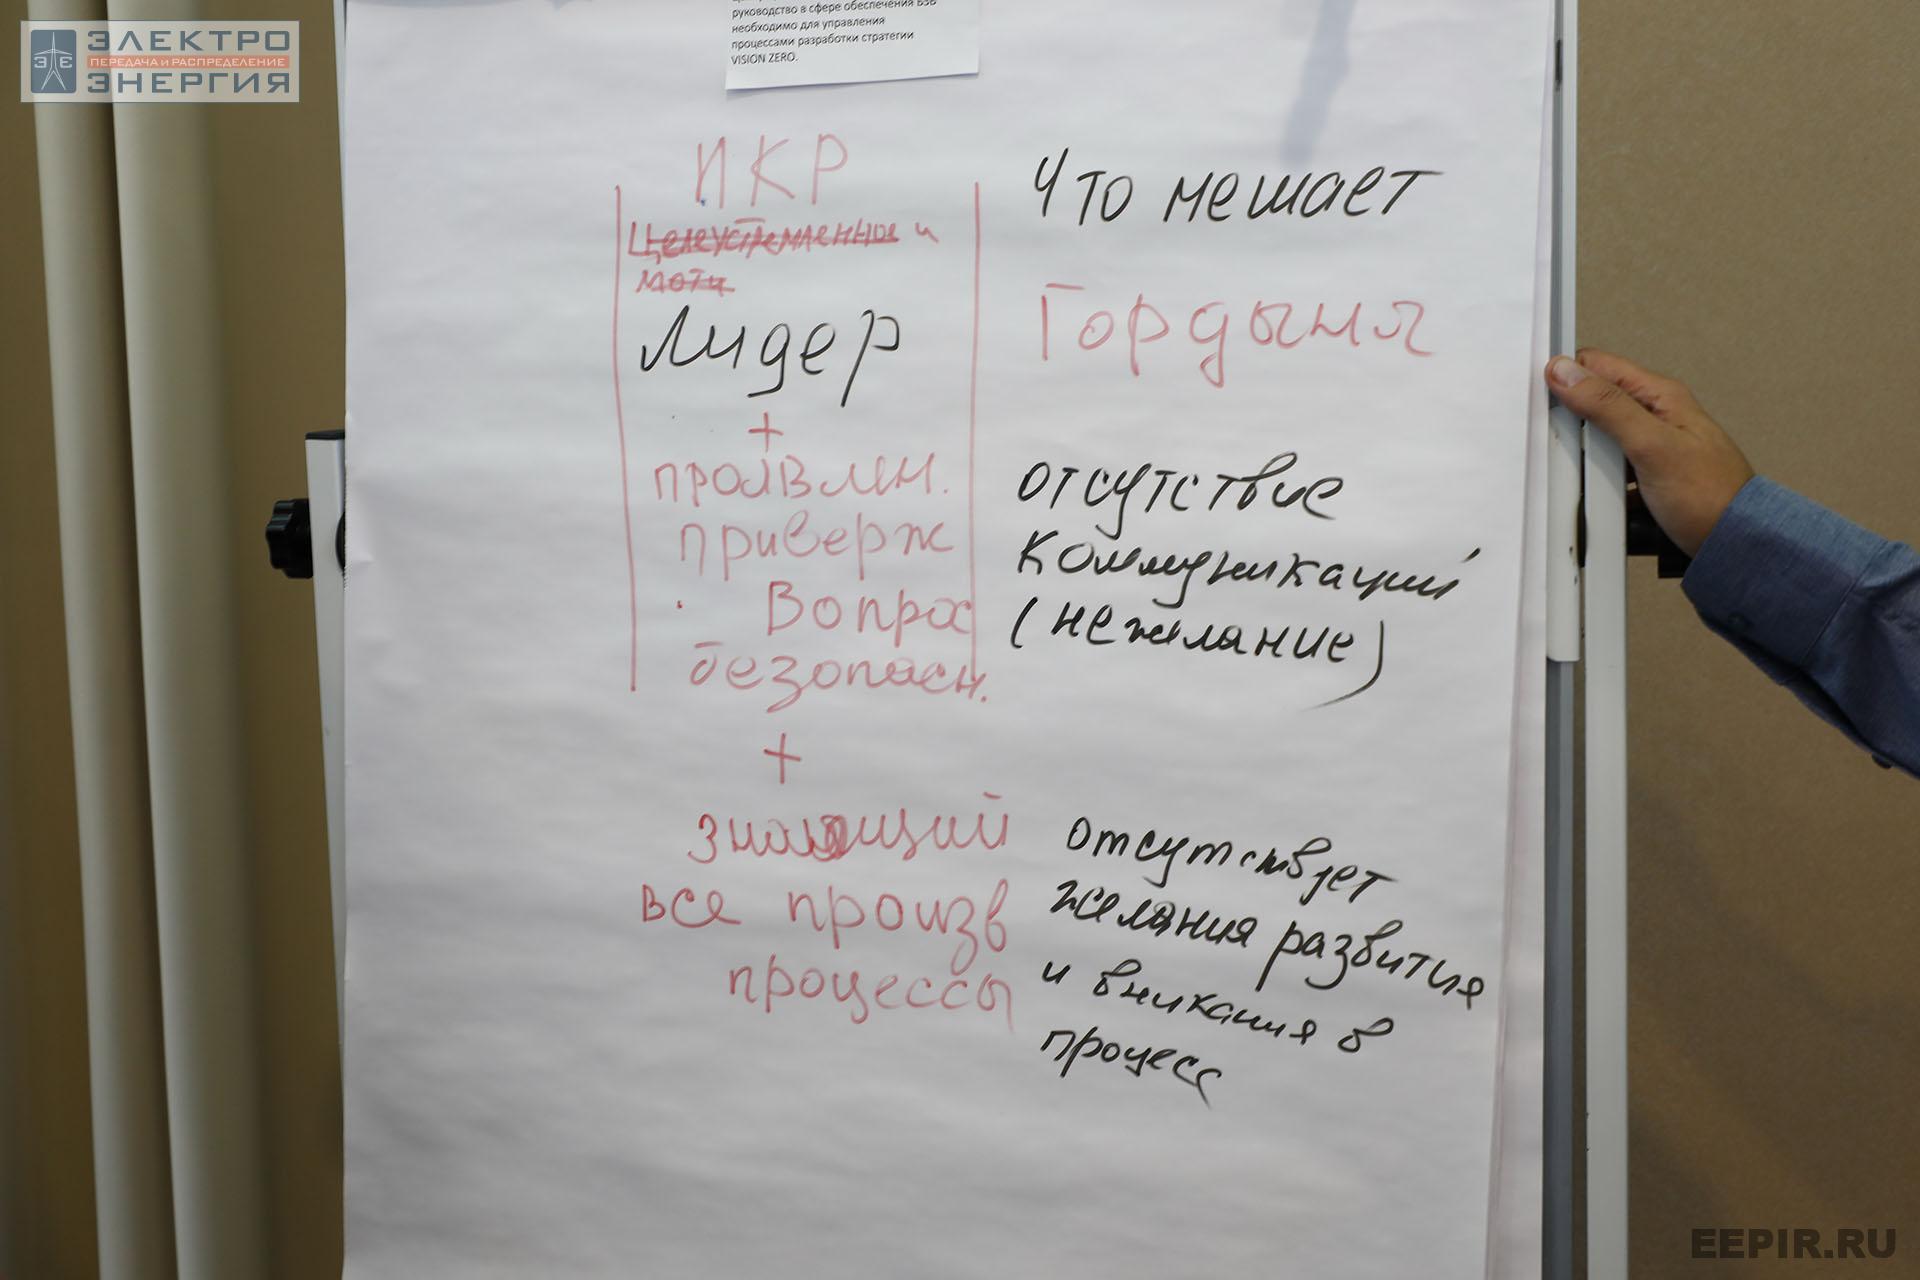 ЭЛЕКТРО
ПЕРЕДАЧА и РАСПРЕДЕЛЕНИЕ
ЭНЕРГИЯ
ЭЭ
руководство в сфере обеспечения БЗБ
необходимо для управления
процессами разработки стратегии
VISION ZERO.
ИКР
Целеустремленное и
моти
Лидер
+
проявлен.
приверж
Вопрос
безопасн.
+
знающий
все произв
процессы
Что мешает
Гордыня
отсутствие
коммуникаций
(нежелание)
отсутствует
желания развития
и вникания в
процесс
EEPIR.RU